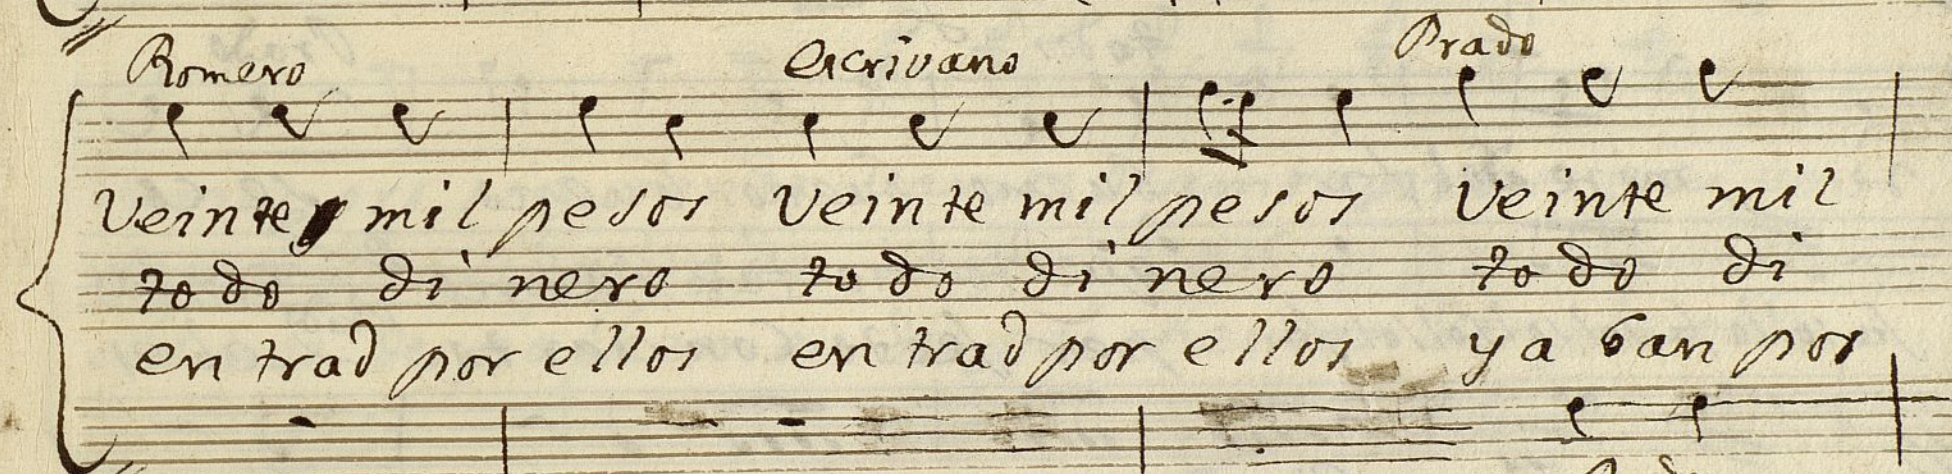 Romero escrivano Prado
Veinte mil pesos Veinte mil pesos Veinte mil
todo dinero todo dinero todo di
entrad por ellos entrad por ellos ya ban por